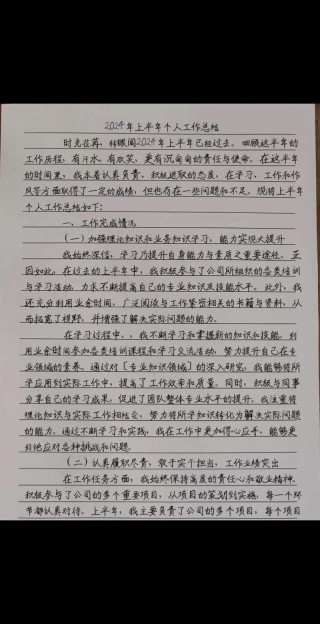 2024年上半年个人工作总结
时光荏苒，转眼间2024年上半年已经过去。回顾这半年的
工作历程，有汗水，有欢笑，更有沉甸甸的责任与使命。在这半年
的时间里，我本着认真负责、积极进取的态度，在学习、工作和作
风等方面取得了一定的成绩，但也存在一些问题和不足。现将上半年
个人工作总结如下：
一、工作完成情况
（一）加强理论知识和业务知识学习，能力实现大提升
我始终深信，学习乃提升自身能力与素质之重要途径。正
因如此，在过去的上半年中，我积极参与了公司所组织的各类培训
与学习活动，力求不断提高自己的专业知识及技能水平。此外，我
还充分利用业余时间，广泛阅读与工作紧密相关的书籍与资料，从
而拓宽了视野，并增强了解决实际问题的能力。
在学习过程中，，我不断学习和掌握新的知识和技能。利
用业余时间参加各类培训课程和学习交流活动，努力提升自己在专
业领域的素养。通过对[专业知识领域]的深入研究，我能够将所
学应用到实际工作中，提高了工作效率和质量。同时，积极与同事
分享自己的学习成果，促进了团队整体专业水平的提升。我注重将
理论知识与实际工作相结合，努力将所学知识转化为解决实际问题
的能力。通过不断学习和实践，我在工作中更加得心应手，能够更
好地应对各种挑战和问题。
（二）认真履职尽责，敢于实干担当，工作业绩突出
在工作任务方面，我始终保持高度的责任心和敬业精神。
积极参与了公司的多个重要项目，从项目的策划到实施，每一个环
节都认真对待。上半年，我主要负责了公司的多个项目，每个项目